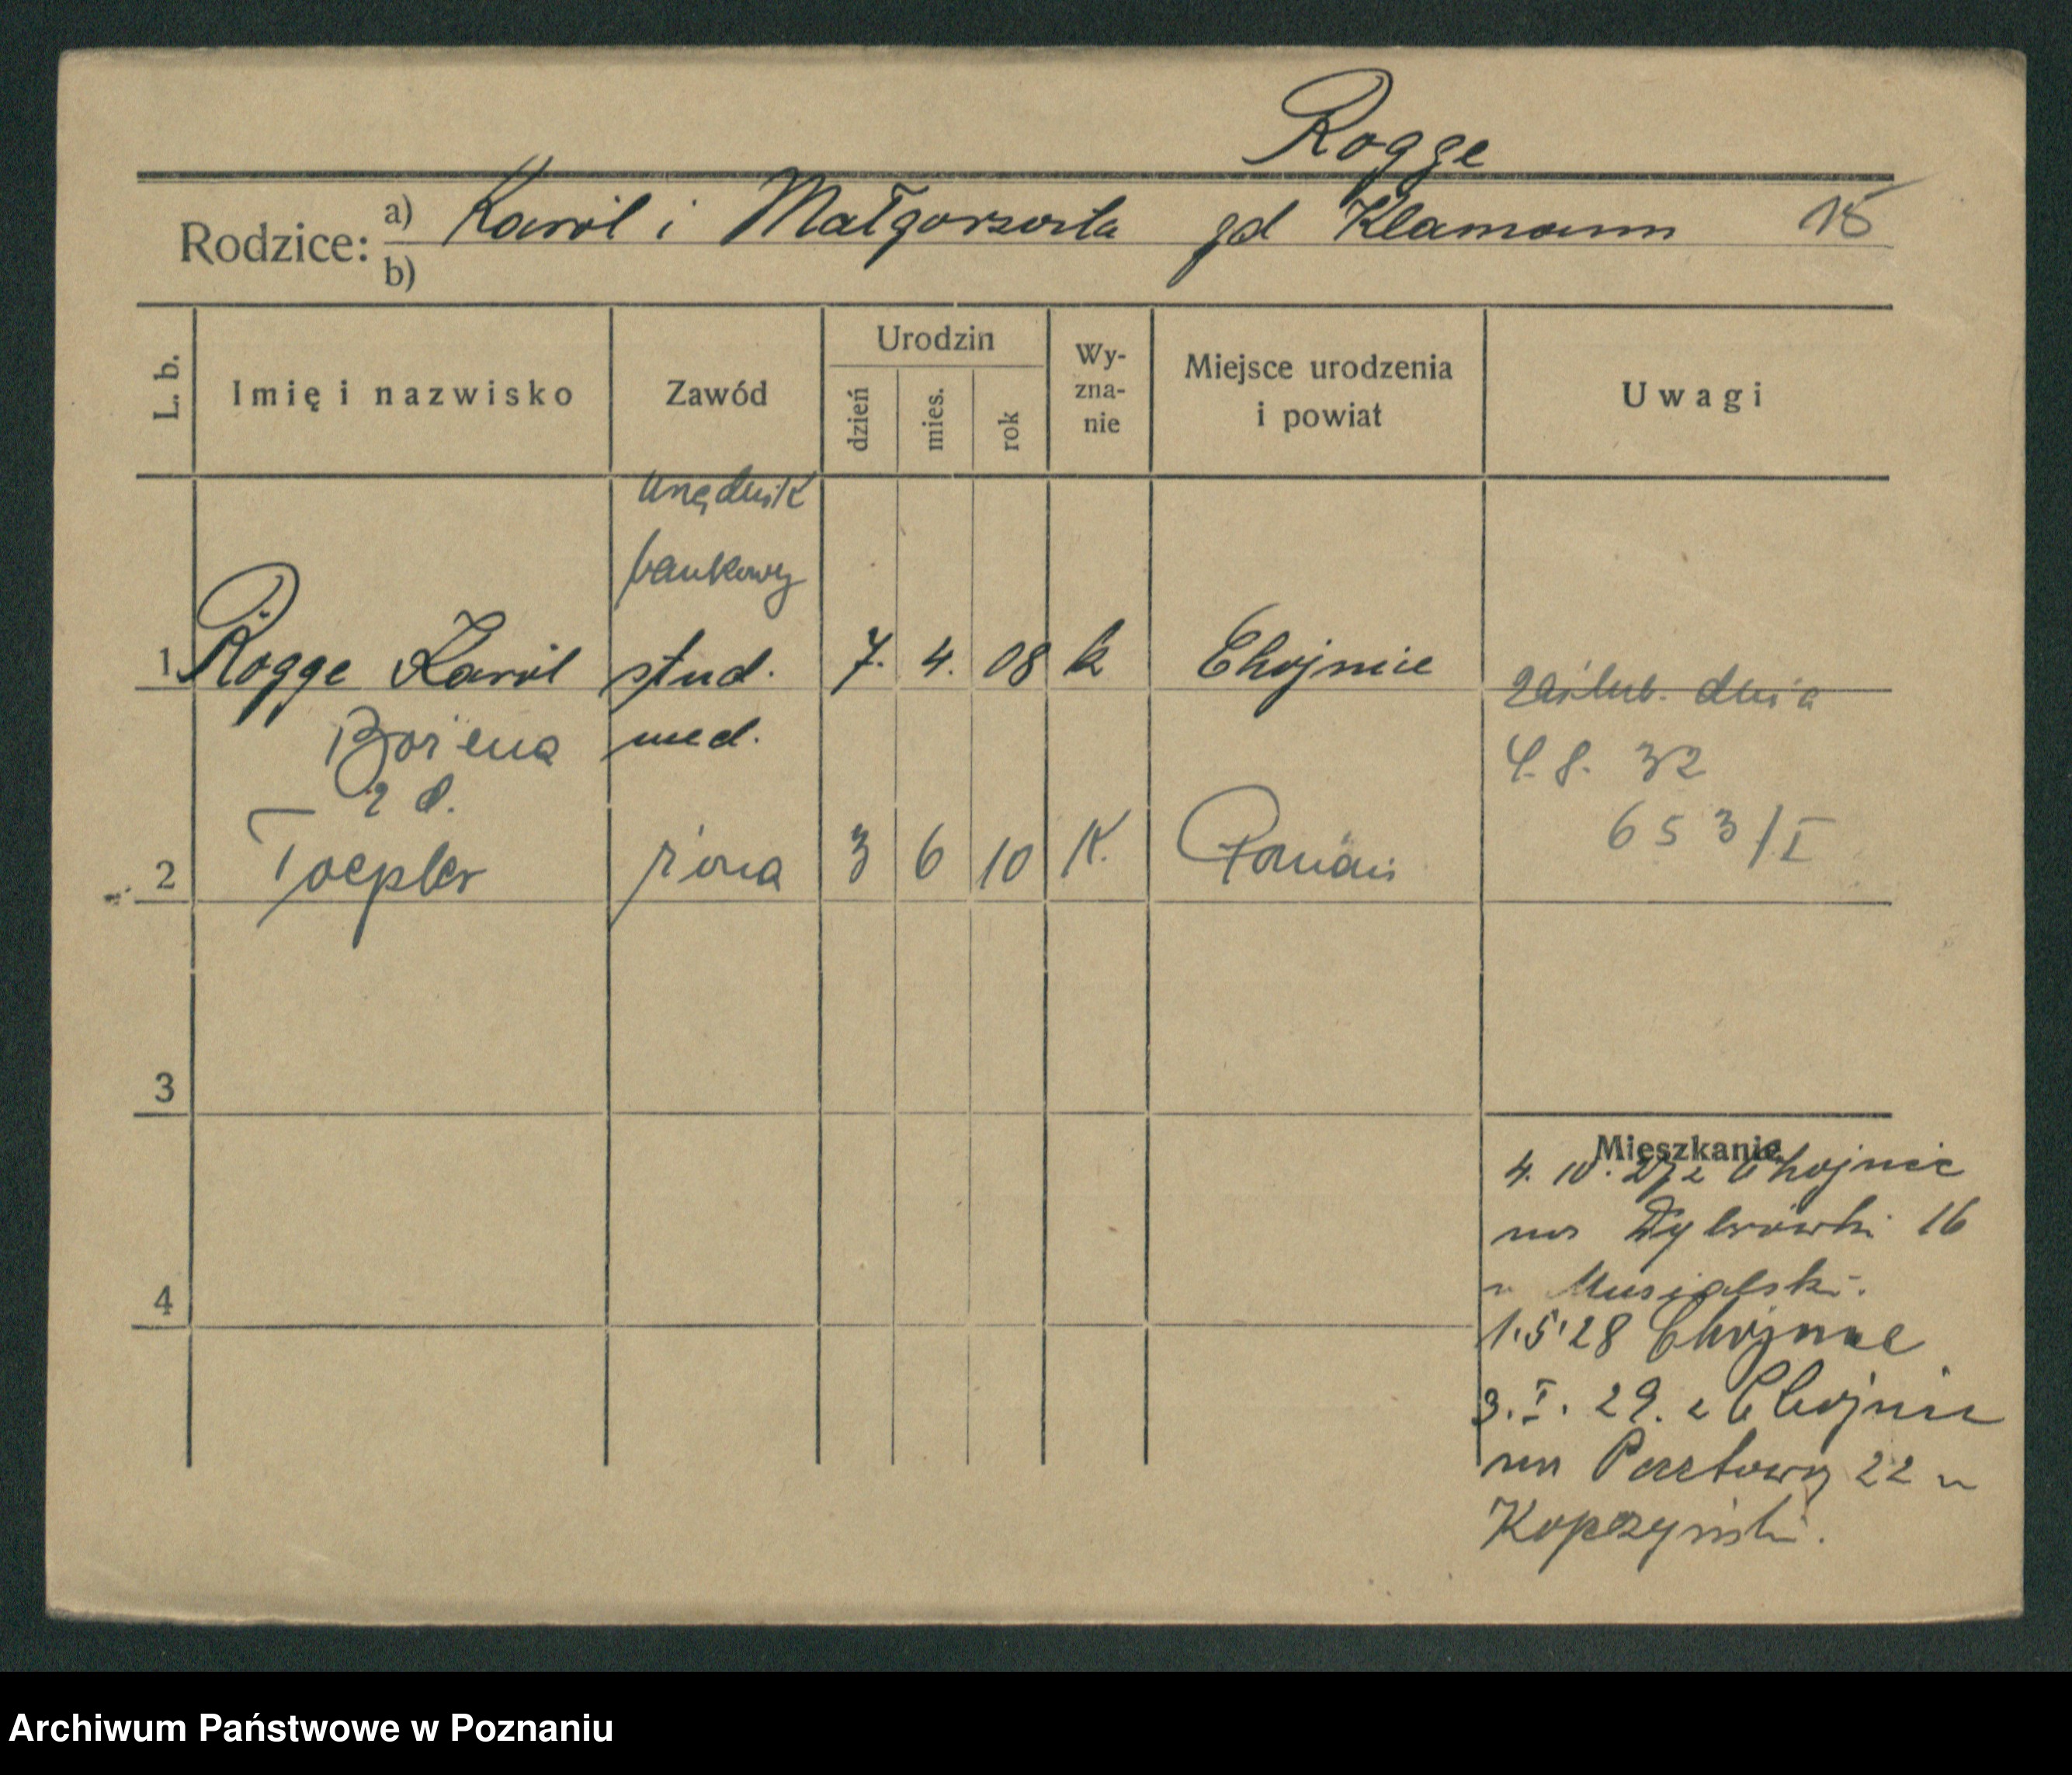 Rogge
Rodzice: a) Karol i Małgorzata zd Klamann 15
b)
L. b. Imię i nazwisko Zawód Urodzin dzień mies. rok Wy-zna-nie Miejsce urodzenia i powiat Uwagi
urzędnik
bankowy
1 Rogge Karol stud. 7. 4. 08 k Chojnice
zaślub. dnia
Bożena med.
4. 8. 32
z d.
653/I
2 Toepler żona 3 6 10 K. Poznań
3
4
Mieszkanie
4. 10. 27 z Chojnic
na Dąbrówki 16
u Musialski.
1.5.28 Chojnice
3. I. 29. z Chojnic
na Pocztowy 22 u
Kopczyński.
Archiwum Państwowe w Poznaniu